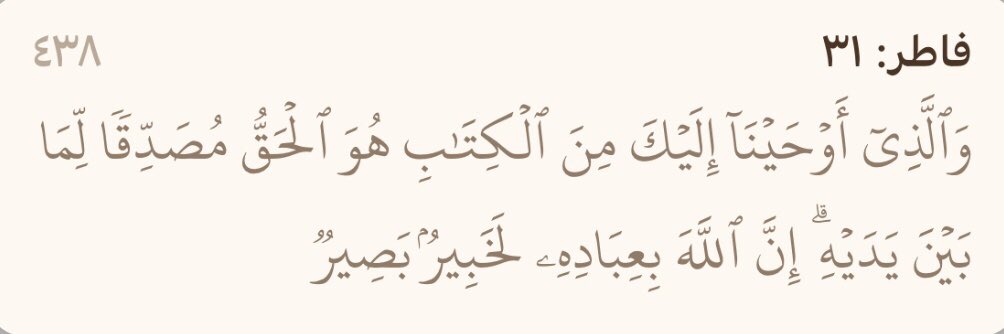 فاطر: ٣١ ٤٣٨
وَٱلَّذِىٓ أَوۡحَيۡنَآ إِلَيۡكَ مِنَ ٱلۡكِتَـٰبِ هُوَ ٱلۡحَقُّ مُصَدِّقٗا لِّمَا
بَيۡنَ يَدَيۡهِۗ إِنَّ ٱللَّهَ بِعِبَادِهِۦ لَخَبِيرُۢ بَصِيرٞ